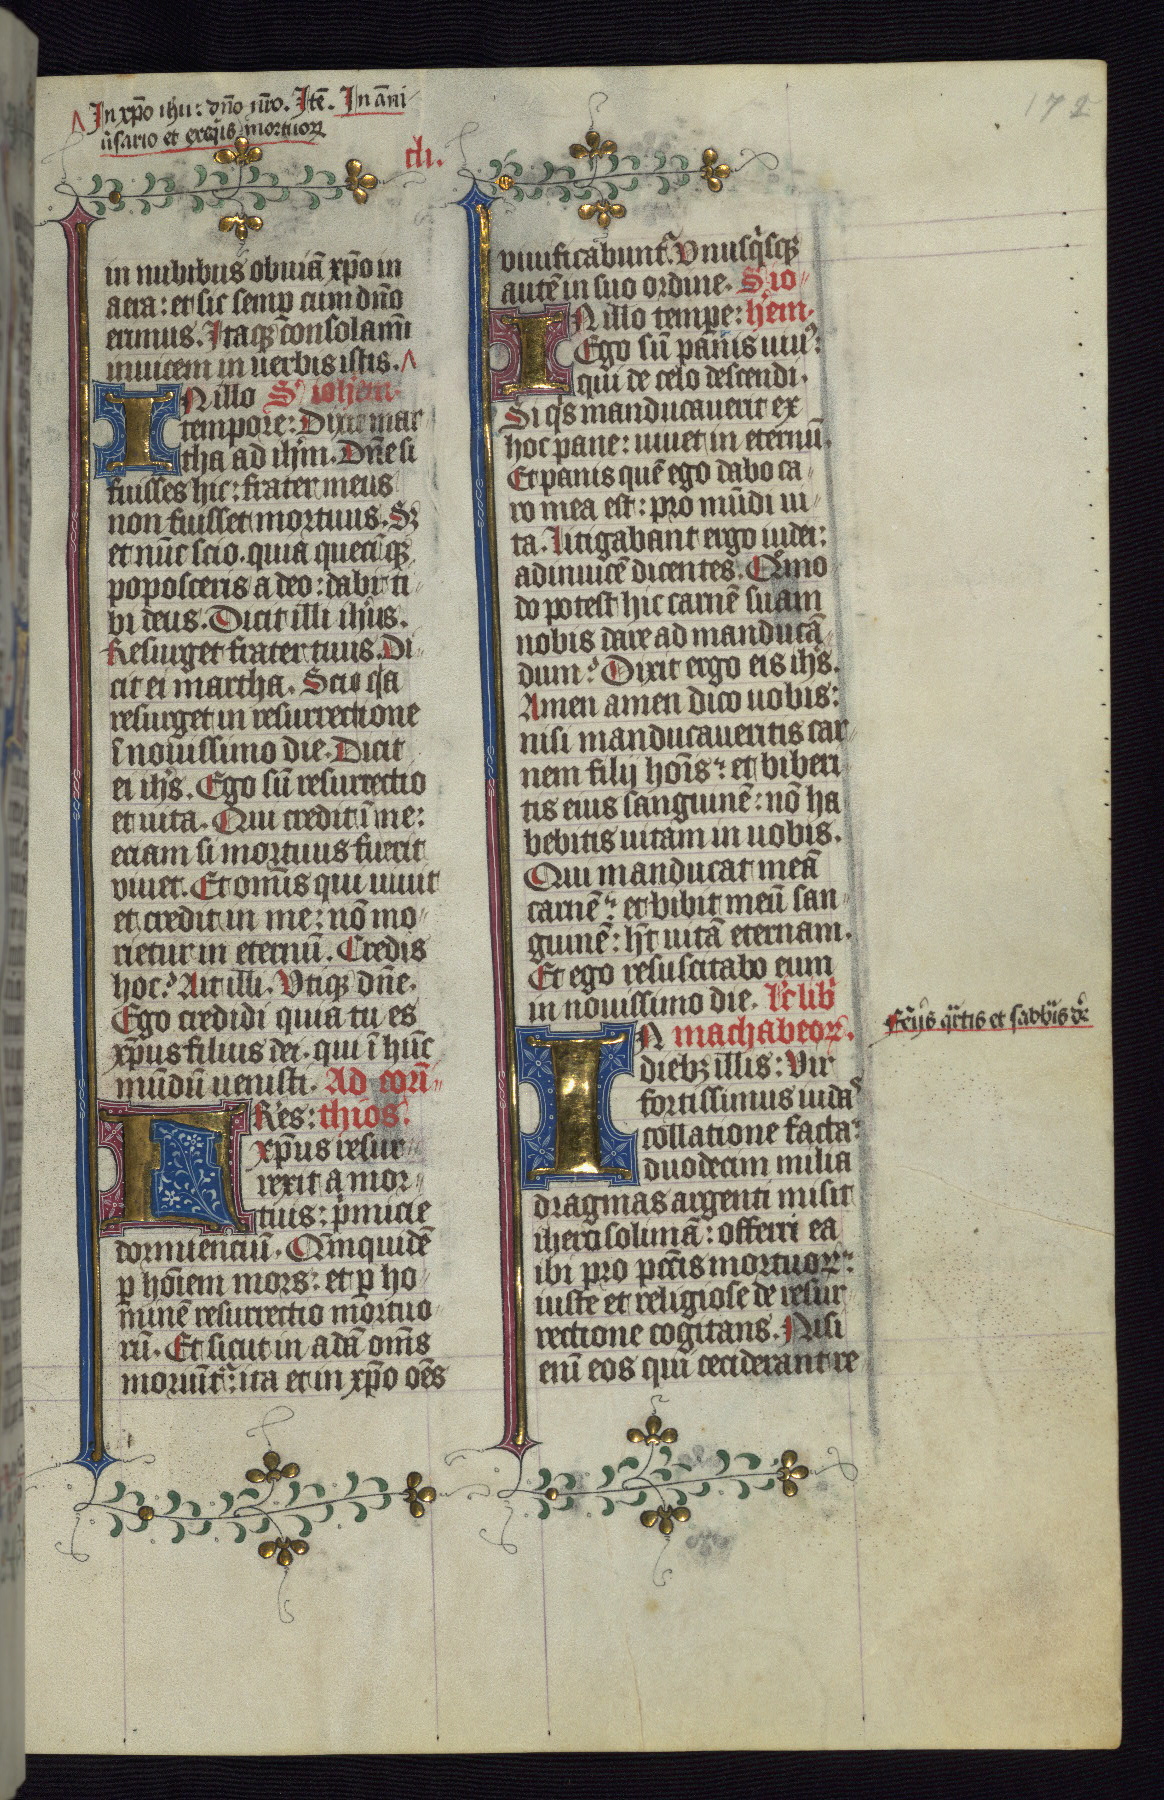 172
In xp̄o ihū: dn̄o nr̄o. Itē. In āni
ūsario et exequijs mortuoꝝ
cli.
in nubibus obuiā xp̄o in
aera: et sic semꝑ cum dn̄o
erimus. Itaqꝫ consolamī
inuicem in uerbis istis.
N illo S' ioh̄em
tempore: Dixit mar
tha ad ih̄m. Dn̄e si
fuisses hic: frater meus
non fuisset mortuus. Sꝫ
et nūc scio. quia quecūqꝫ
poposceris a deo: dabit ti
bi deus. Dicit illi ih̄us.
Resurget frater tuus. Di
cit ei martha. Scio qa
resurget in resurrectione
ī nouissimo die. Dicit
ei ih̄s. Ego sū resurrectio
et uita. Qui credit ī me:
eciam si mortuus fuerit
viuet. Et omīs qui uiuit
et credit in me: nō mo
rietur in eternū. Credis
hoc? Ait illi. Vtiqꝫ dn̄e.
Ego credidi quia tu es
xp̄us filius dei. qui ī hūc
mūdū uenisti. Ad corī
Fr̄es: thios.
xp̄us resur
rexit a mor
tuis: pͥmicie
dormienciū. Qm̄ quidē
ꝑ hōīem mors: et ꝑ ho
minē resurrectio mortuo
rū. Et sicut in adā omīs
moriūtᷣ: ita et in xp̄o oēs
viuificabuntᷣ. Vnusqͥsqꝫ
autē in suo ordine. S' io
N illo temp̄e: hēm.
Ego sū panis uiuꝰ:
qui de celo descendi.
Si qͥs manducauerit ex
hoc pane: uiuet in eternū.
Et panis quē ego dabo ca
ro mea est: pro mūdi ui
ta. Litigabant ergo iudei:
adinuicē dicentes. Qͦmo
do potest hic carnē suam
nobis dare ad manducā
dum? Dixit ergo eis ih̄s.
Amen amen dico uobis:
nisi manducaueritis car
nem filij hoīs: et biberi
tis eius sanguinē: nō ha
bebitis uitam in uobis.
Qui manducat meā
carnē: et bibit meū san
guinē: hꝫ uitā eternam.
Et ego resuscitabo eum
in nouissimo die. Lc̄ lib'
N machabeoꝝ.
diebꝫ illis: Vir
fortissimus iudas
collatione facta:
duodecim milia
dragmas argenti misit
iherosolimā: offerri ea
ibi pro pccīs mortuoꝝ:
iuste et religiose de resur
rectione cogitans. Nisi
enī eos qui ceciderant re
Ferijs qͣrtis et sabbīs